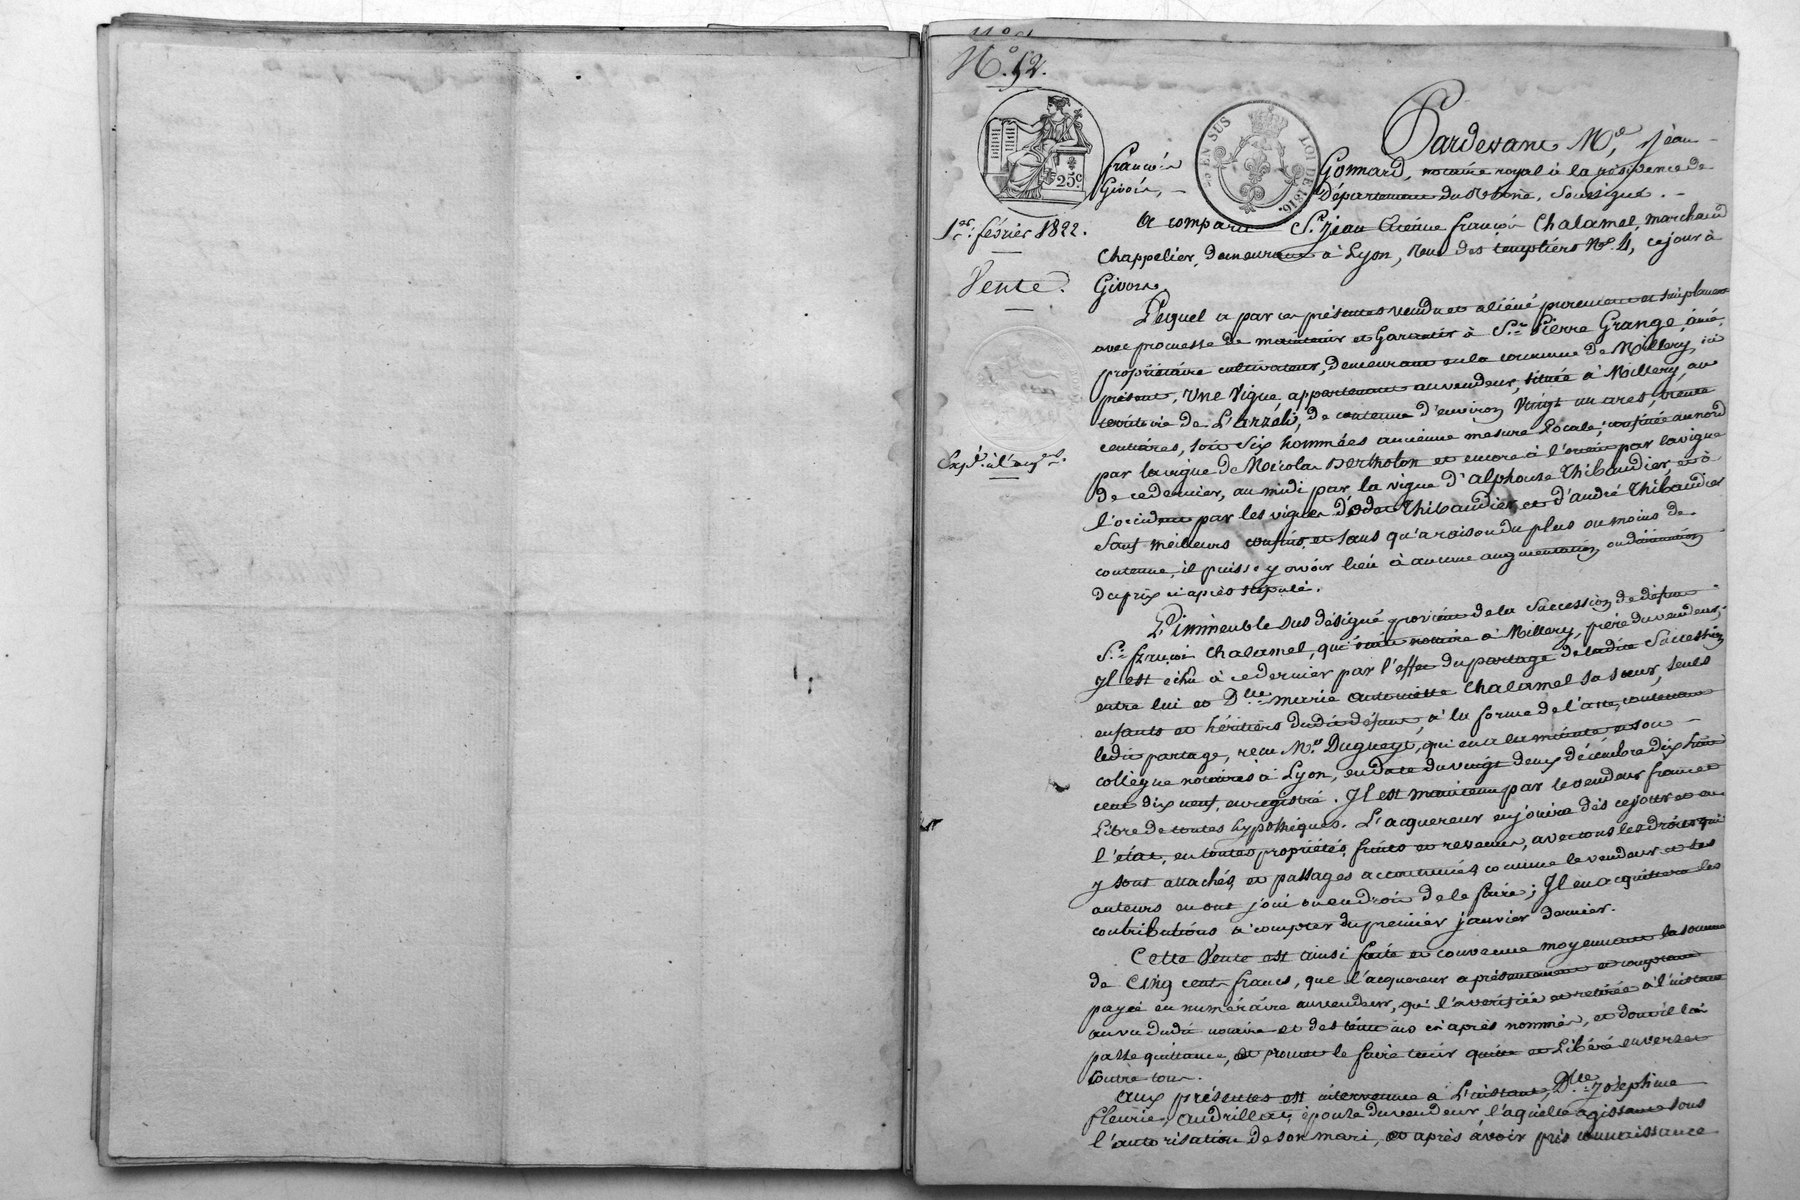 N.° 52.
25c
5c EN SUS
LOI DE 1816.
1er. février 1822.
Vente.
Expé. à l'acqr.
Pardevant Me, Jean
françois Gonnard, notaire royal à la résidence de
Givors, Département du Rhône, Soussigné.
A comparu Sr. Jean Etienne françois Chalamel, marchand
Chappelier, demeurant à Lyon, Rue des templiers No. 4, ce jour à
Givors.
Lequel a par ces présentes vendu et aliéné purement et simplement
avec promesse de maintenir et Garantir à Sr. Pierre Grange, ainé,
propriétaire cultivateur, demeurant en la commune de Millery, ici
présent, Une Vigne, appartenant au vendeur, située à Millery, au
territoire de L'arzelé, de contenue d'environ Vingt un ares, trente
centiares, soit Six hommées ancienne mesure Locale; confinée au nord
par la vigne de Nicolas Bertholon et encore à l'orient par la vigne
de ce dernier, au midi par la vigne d'alphonse Thibaudier, et à
l'occident par les vignes d'Odon Thibaudier et d'andré Thibaudier
Sauf meilleurs confins, et sans qu'à raison du plus ou moins de
contenue, il puisse y avoir lieu à aucune augmentation ou diminution
du prix ci après stipulé.
L'immeuble sus désigné provient de la Succession de défunt
Sr. françois Chalamel, qui était notaire à Millery, père du vendeur,
Il est échu à ce dernier par l'effet du partage de ladite Succession
entre lui et Dlle. marie antoinette Chalamel sa sœur, seuls
enfants et héritiers dudit défunt, à la forme de l'acte, contenant
ledit partage, reçu Me. Dugueyt, qui en a la minute et son
collègue notaires à Lyon, en date du vingt deux décembre dix huit
cent dix neuf, enregistré. Il est maintenu par le vendeur franc et
Libre de toutes hypothèques. L'acquereur en jouira dès ce jour et en
l'état, en toutes propriétés, fruits et revenus, avec tous les droits qui
y sont attachés, et passages accoutumés, comme le vendeur et ses
auteurs en ont joui ou eu droit de le faire; Il en acquittera les
contributions à compter du premier janvier dernier.
Cette Vente est ainsi faite et convenue moyennant la somme
de Cinq cent francs, que l'acquereur a présentement et comptant
payée en numéraire au vendeur, qui l'a vérifiée et retirée à l'instant
au vu dudit notaire et des témoins ci après nommés, et dont il lui
passe quittance, et promet le faire tenir quitte et Libéré envers et
contre tous.
Aux présentes est intervenue à L'instant, Dlle. Joséphine
Fleurie, épouse du vendeur, laquelle agissant sous
l'autorisation de son mari, et après avoir pris connaissance